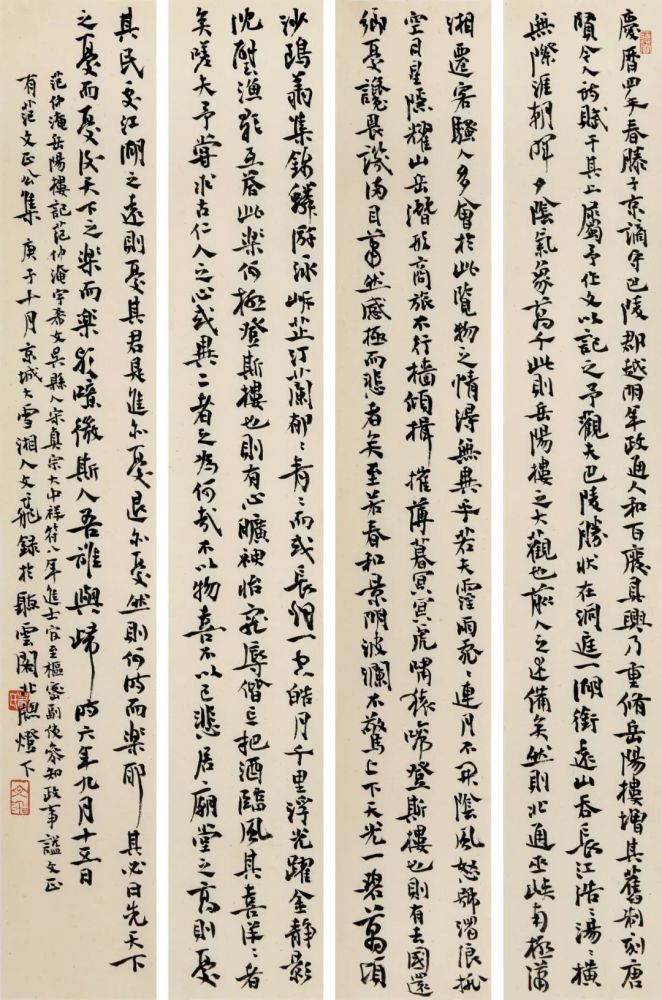 慶曆四年春滕子京謫守巴陵郡越明年政通人和百廢具興乃重脩岳陽樓增其舊制刻唐
賢今人詩賦于其上屬予作文以記之予觀夫巴陵勝狀在洞庭一湖銜遠山吞長江浩〻湯〻橫
無際涯朝暉夕陰氣象萬千此則岳陽樓之大觀也前人之述備矣然則北通巫峽南極瀟
湘遷客騷人多會於此覽物之情得無異乎若夫霪雨霏〻連月不開陰風怒號濁浪排
空日星隱耀山岳潛形商旅不行檣傾楫摧薄暮冥冥虎嘯猿啼登斯樓也則有去國還
鄉憂讒畏譏滿目蕭然感極而悲者矣至若春和景明波瀾不驚上下天光一碧萬頃
沙鷗翔集錦鱗游泳岸芷汀蘭郁〻青〻而或長烟一空皓月千里浮光躍金靜影
沈璧漁歌互答此樂何極登斯樓也則有心曠神怡寵辱偕忘把酒臨風其喜洋〻者
矣嗟夫予嘗求古仁人之心或異二者之為何哉不以物喜不以己悲居廟堂之高則憂
其民處江湖之遠則憂其君是進亦憂退亦憂然則何時而樂耶其必曰先天下
之憂而憂後天下之樂而樂歟噫微斯人吾誰與歸時六年九月十五日
范仲淹岳陽樓記范仲淹字希文吳縣人宋真宗大中祥符八年進士官至樞密副使參知政事謚文正
有范文正公集庚子十月京城大雪湘人文飛錄於雲閣北牕燈下